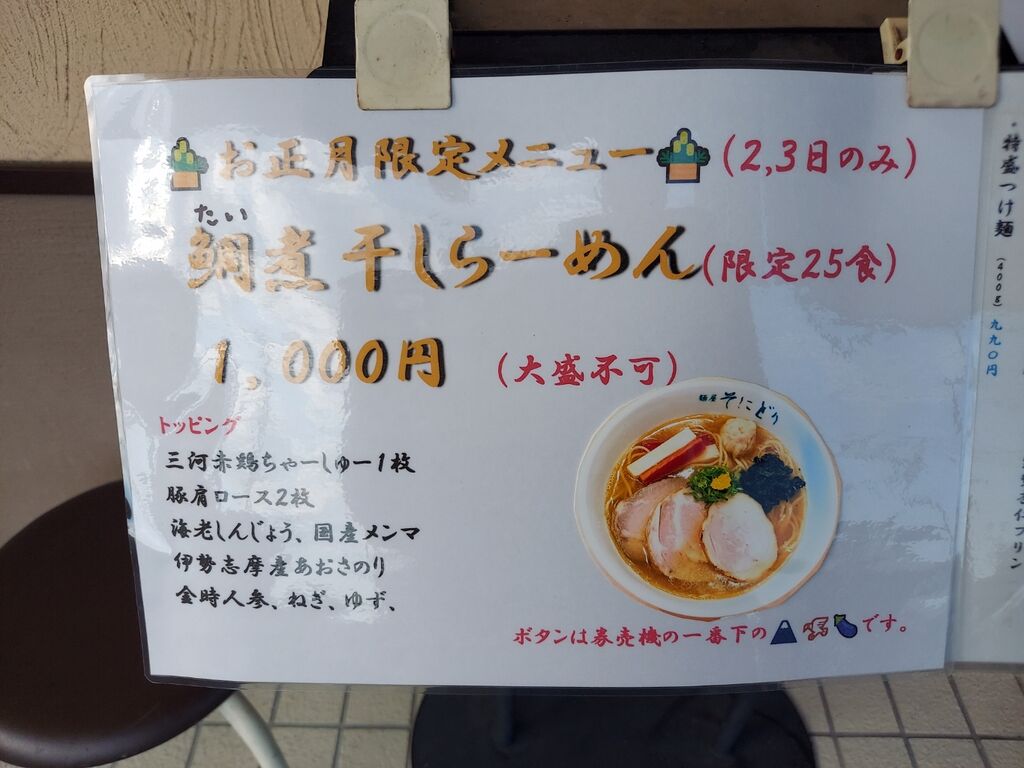 お正月限定メニュー (2,3日のみ)
たい
鯛煮干しらーめん(限定25食)
1,000円 (大盛不可)
トッピング
三河赤鶏ちゃーしゅー1枚
豚肩ロース2枚
海老しんじょう、国産メンマ
伊勢志摩産あおさのり
金時人参、ねぎ、ゆず、
麺屋 そにどり
ボタンは券売機の一番下の です。
・特盛つけ麺
(400g)
九九〇円
プリン